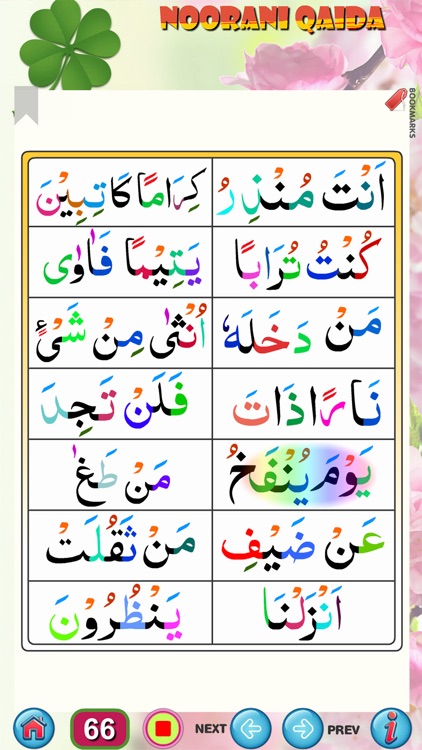 NOORANI QAIDA
BOOKMARKS
اَنْتَ مُنْذِرُ كِرَامًا كَاتِبِيْنَ
كُنْتُ تُرَابًا يَتِيْمًا فَاٰوٰى
مَنْ دَخَلَهٗ اُنْثٰى مِنْ شَىْءٍ
نَارًا ذَاتَ فَلَنْ تَجِدَ
يَوْمَ يُنْفَخُ مَنْ طَغٰ
عَنْ ضَيْفِ مَنْ ثَقُلَتْ
اَنْزَلْنَا يَنْظُرُوْنَ
66 NEXT PREV i